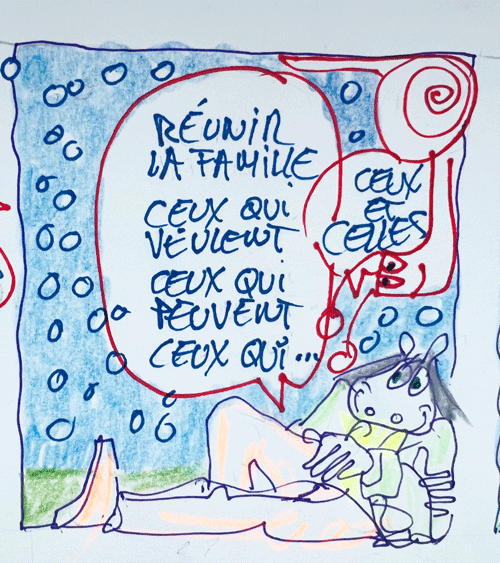 RÉUNIR
LA FAMILLE
CEUX QUI
VEULENT
CEUX QUI
PEUVENT
CEUX QUI...
CEUX
ET
CELLES